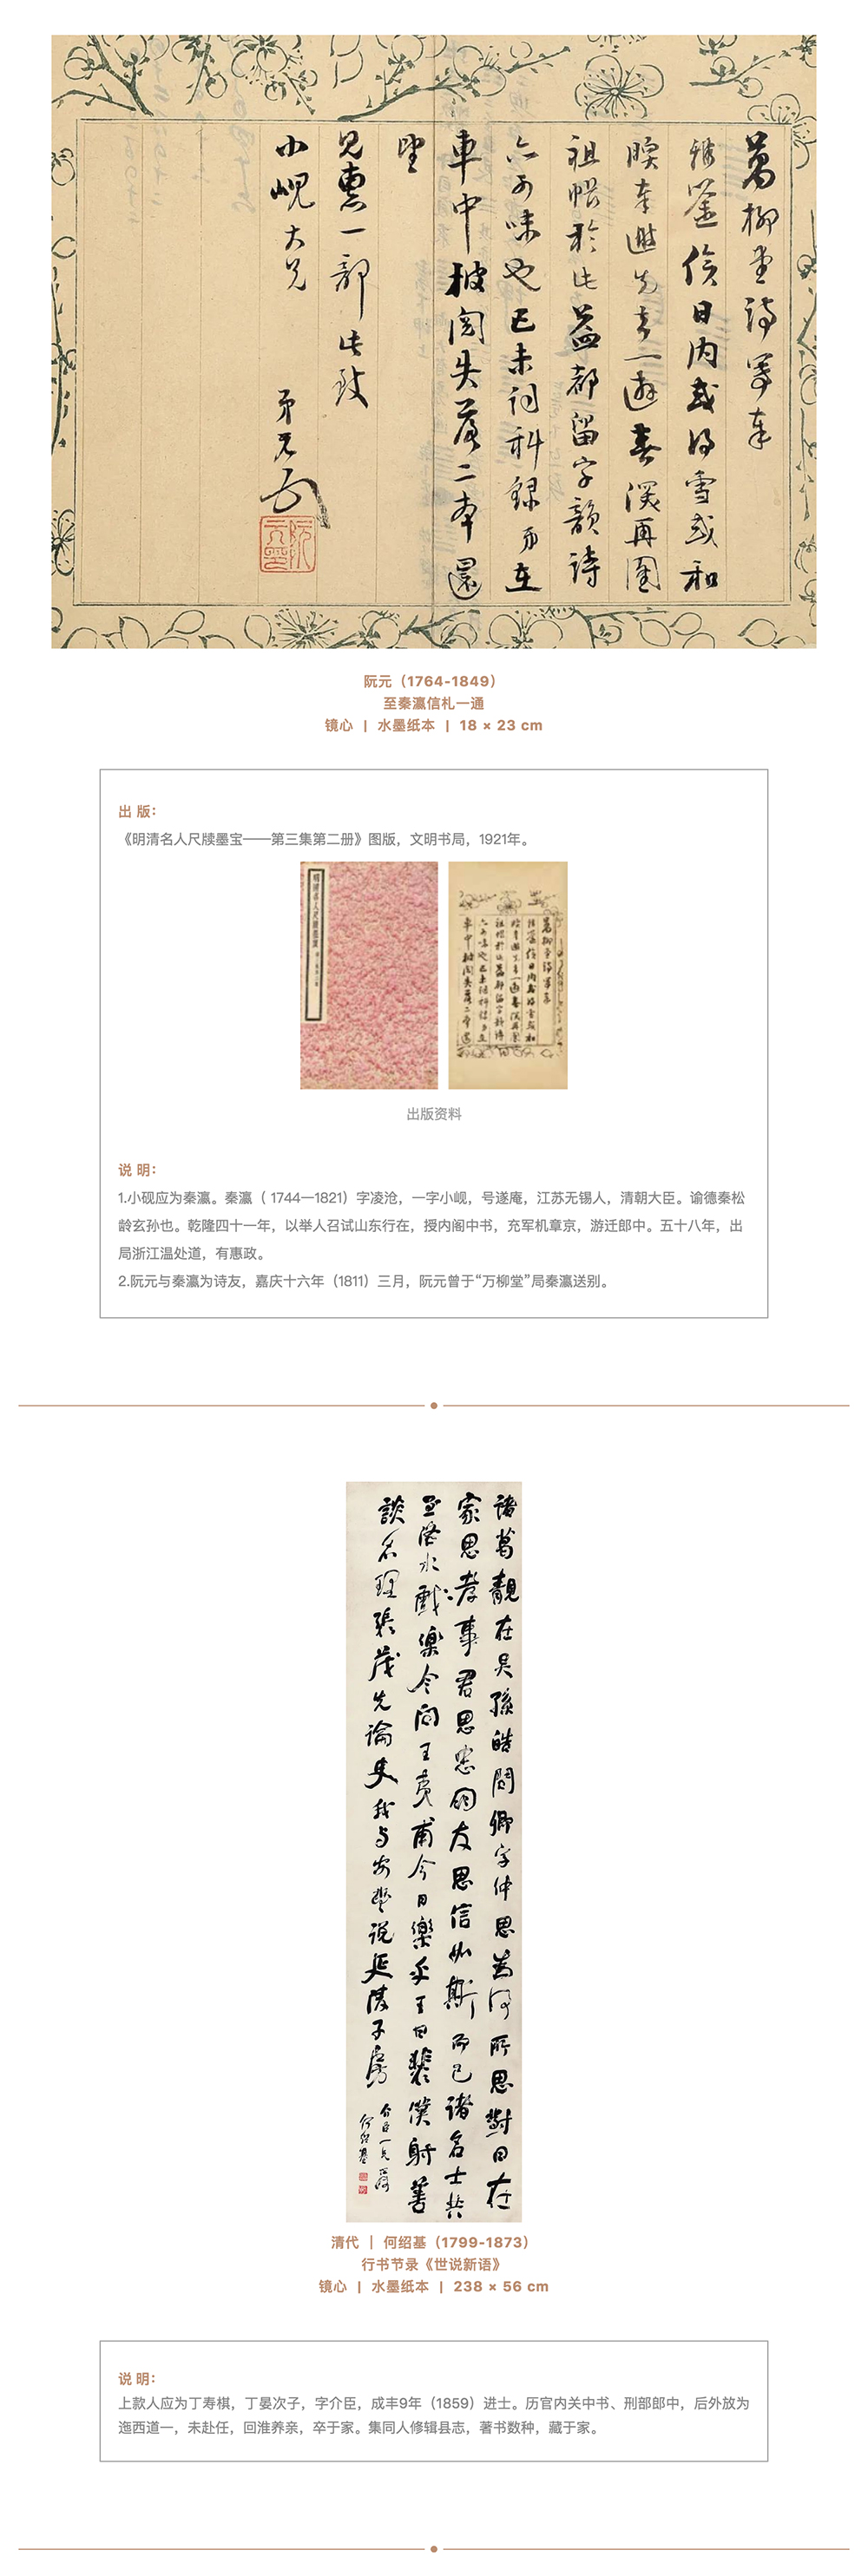 萬柳堂詩寫奉
鑒俟日内或得雪或和
暖奉邀先去一遊春深再圖
祖帳於此益都留字韻詩
六可味也己未詞科錄弟在
車中披閱失落二本還
望
見惠一部此致
小峴大兄
弟元
阮元（1764-1849）
至秦瀛信札一通
镜心 | 水墨纸本 | 18 × 23 cm
出 版：
《明清名人尺牍墨宝——第三集第二册》图版，文明书局，1921年。
出版资料
说 明：
1.小砚应为秦瀛。秦瀛（ 1744—1821）字凌沧，一字小岘，号遂庵，江苏无锡人，清朝大臣。谕德秦松
龄玄孙也。乾隆四十一年，以举人召试山东行在，授内阁中书，充军机章京，游迁郎中。五十八年，出
局浙江温处道，有惠政。
2.阮元与秦瀛为诗友，嘉庆十六年（1811）三月，阮元曾于“万柳堂”局秦瀛送别。
諸葛靚在吴孫皓問卿字仲思為何所思對曰在
家思孝事君思忠朋友思信如斯而已諸名士共
至洛水戲樂令問王夷甫今日樂乎王曰裴僕射善
談名理張茂先論史我与安豐说延陵子房
何绍基
清代 ｜ 何绍基（1799-1873）
行书节录《世说新语》
镜心 | 水墨纸本 | 238 × 56 cm
说 明：
上款人应为丁寿棋，丁晏次子，字介臣，成丰9年（1859）进士。历官内关中书、刑部郎中，后外放为
迤西道一，未赴任，回淮养亲，卒于家。集同人修辑县志，著书数种，藏于家。